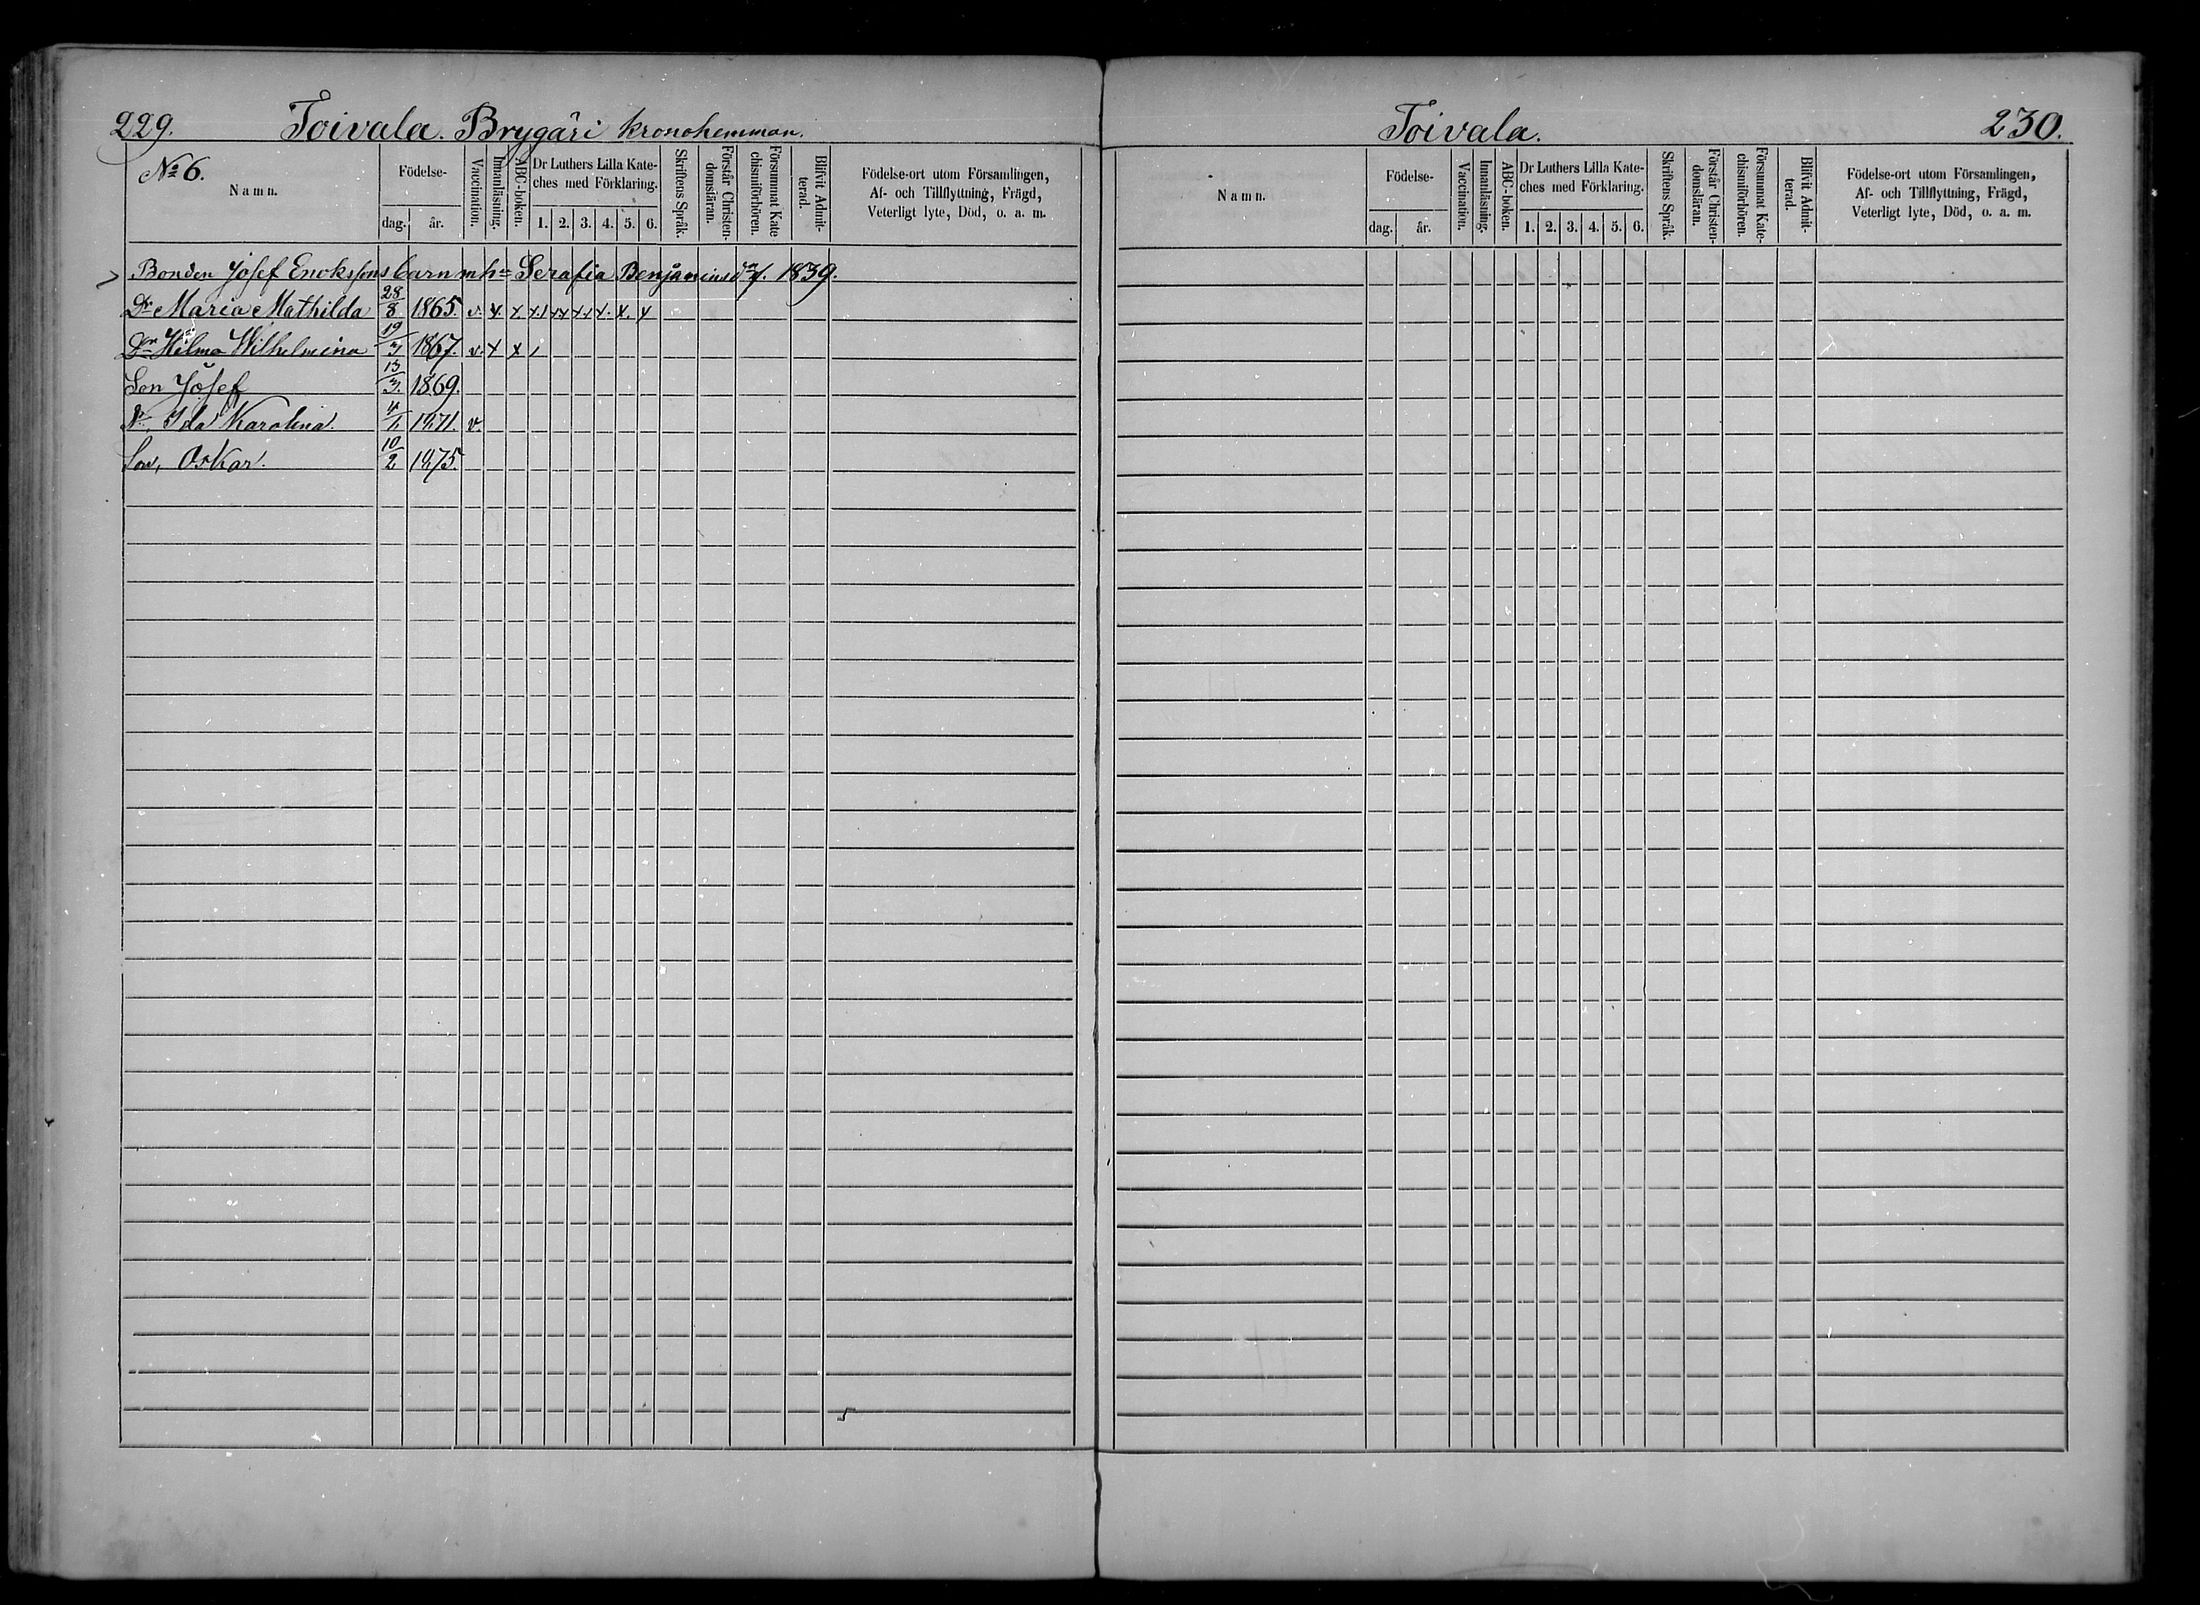 229. Toivala. Brygäri kronohemman.
No 6.
Namn. Födelse- dag. år. Vaccination. Innanläsning. ABC-boken. Dr Luthers Lilla Kateches med Förklaring. 1. 2. 3. 4. 5. 6. Skriftens Språk. Förstår Christendomsläran. Försummat Katechismiförhören. Blifvit Admitterad. Födelse-ort utom Församlingen, Af- och Tillflyttning, Frägd, Veterligt lyte, Död, o. a. m.
Bonden Josef Enoksons barn m hu Serafia Benjaminsdr f. 1839.
Dr Maria Mathilda 28/8 1865. v. x. x. x1 xx x.x x. x. x
Dr Hilma Wilhelmina 19/3 1867. v. x x 1
Son Josef 13/3. 1869.
Dr. Ida Karolina. 4/1 1871. v.
Son, Oskar. 10/2 1875.
5
Toivala. 230.
Namn. Födelse- dag. år. Vaccination. Innanläsning. ABC-boken. Dr Luthers Lilla Kateches med Förklaring. 1. 2. 3. 4. 5. 6. Skriftens Språk. Förstår Christendomsläran. Försummat Katechismiförhören. Blifvit Admitterad. Födelse-ort utom Församlingen, Af- och Tillflyttning, Frägd, Veterligt lyte, Död, o. a. m.